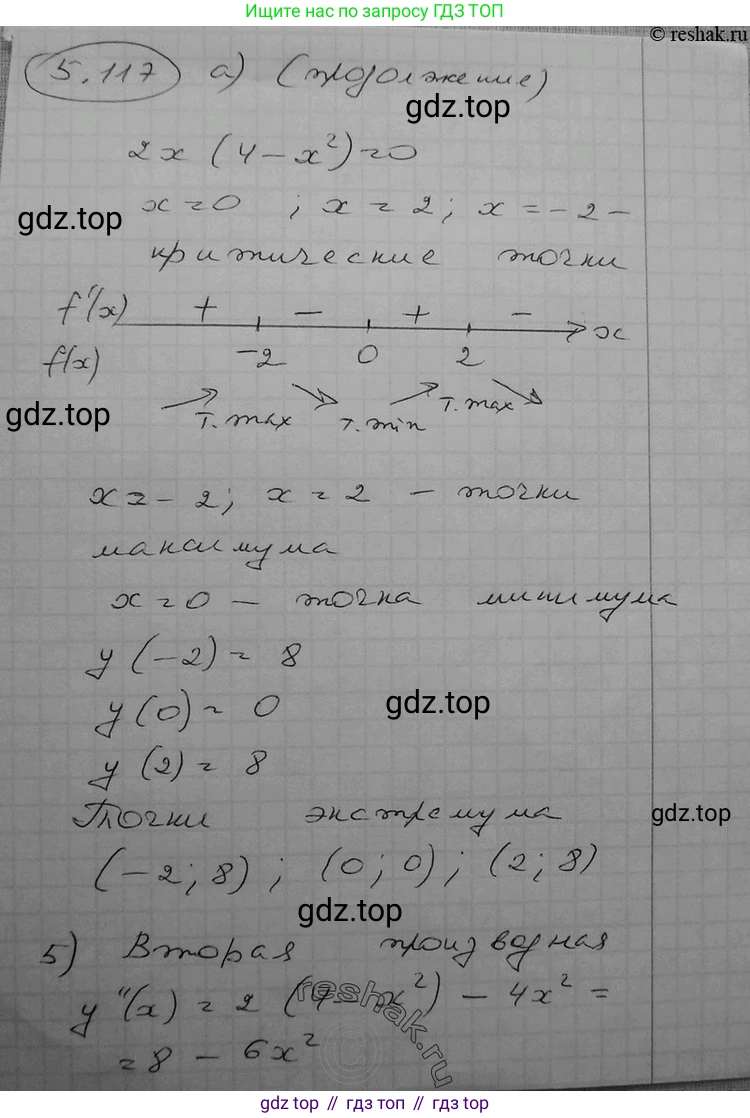 Ищите нас по запросу ГДЗ ТОП
© reshak.ru
5.117 а) (продолжение)
gdz.top
2x (4 - x²) = 0
gdz.top
x = 0 ; x = 2 ; x = -2 -
критические точки
f'(x) + - + - x
f(x) -2 0 2
gdz.top
т. max т. min т. max
x = -2; x = 2 - точки
максимума
x = 0 - точка минимума
y (-2) = 8
y (0) = 0
gdz.top
y (2) = 8
Точки экстремума
gdz.top
(-2; 8) ; (0; 0) ; (2; 8)
gdz.top
5) Вторая производная
y"(x) = 2 (4 - x²) - 4x² =
reshak.ru
= 8 - 6x²
gdz.top // гдз топ // gdz.top